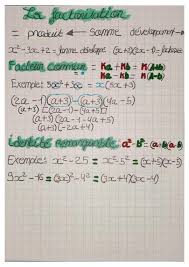 La factorisation
= produit ← somme développement →
x²-3x+2 = forme développée (x+2)(x-1) = factorisée
Facteur commun = Ka + Kb = K(a+b)
Ka - Kb = K(a-b)
Exemple: 3x² + 3x =
(2a-1)(a+3) - (a+3)(4a-5)
(a+3) [(2a-1) - (4a+5)]
(a+3) (2a-1-4a+5)
(a+3) (-2a+4)
identité remarquable a²-b²=(a-b)(a+b)
Exemple: x²-25 = x²-5² = (x+5)(x-5)
9x²-16 = (3x)²-4² = (3x+4)(3x-4)